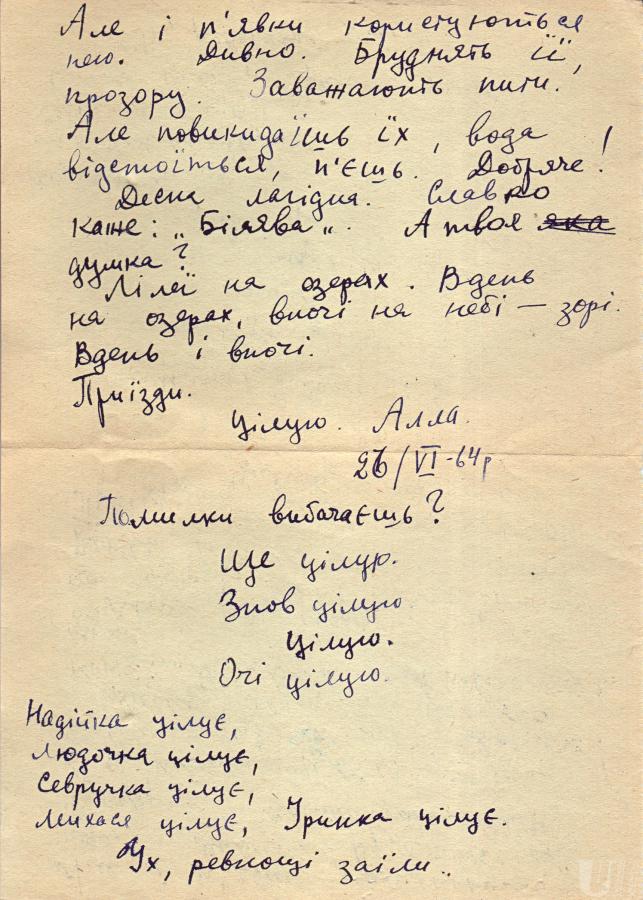 Але і п'явки користуються
нею. Дивно. Бруднять її,
прозору. Заважають пити.
Але повикидаїшь їх, вода
відстоїться, п'єшь. Добряче!
Десна лагідна. Славко
каже: „Білява". А твоя яка
думка?
Лілеї на озерах. Вдень
на озерах, вночі на небі — зорі.
Вдень і вночі.
Приїзди.
Цілую. Алла.
26/VI-64р
Помилки вибачаєшь?
Ще цілую.
Знов цілую.
Цілую.
Очі цілую.
Надійка цілує,
Людочка цілує,
Севручка цілує,
Михася цілує, Іринка цілує.
Ух, ревнощі заїли..